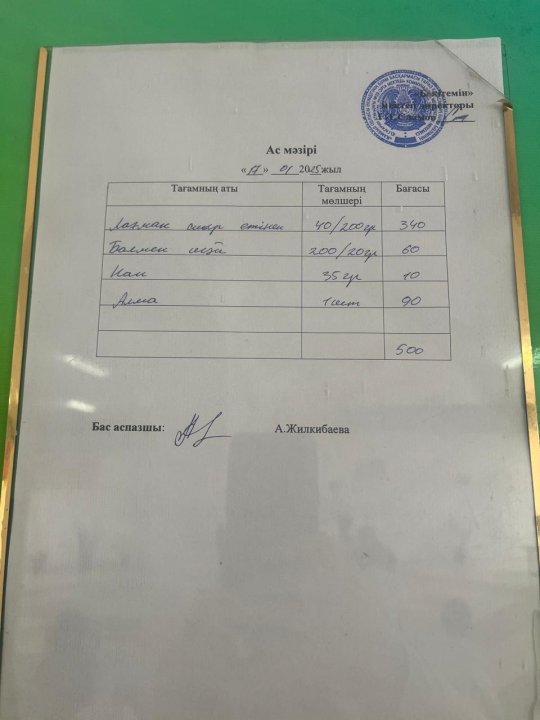 «Бекітемін»
мектеп директоры
Ас мәзірі
«17» 01 2025 жыл
Тағамның аты Тағамның мөлшері Бағасы
Лағман сиыр етінен 40/200гр 340
Балмен шәй 200/20гр 60
Нан 35гр 10
Алма 1шт 90
500
Бас аспазшы: А.Жилкибаева